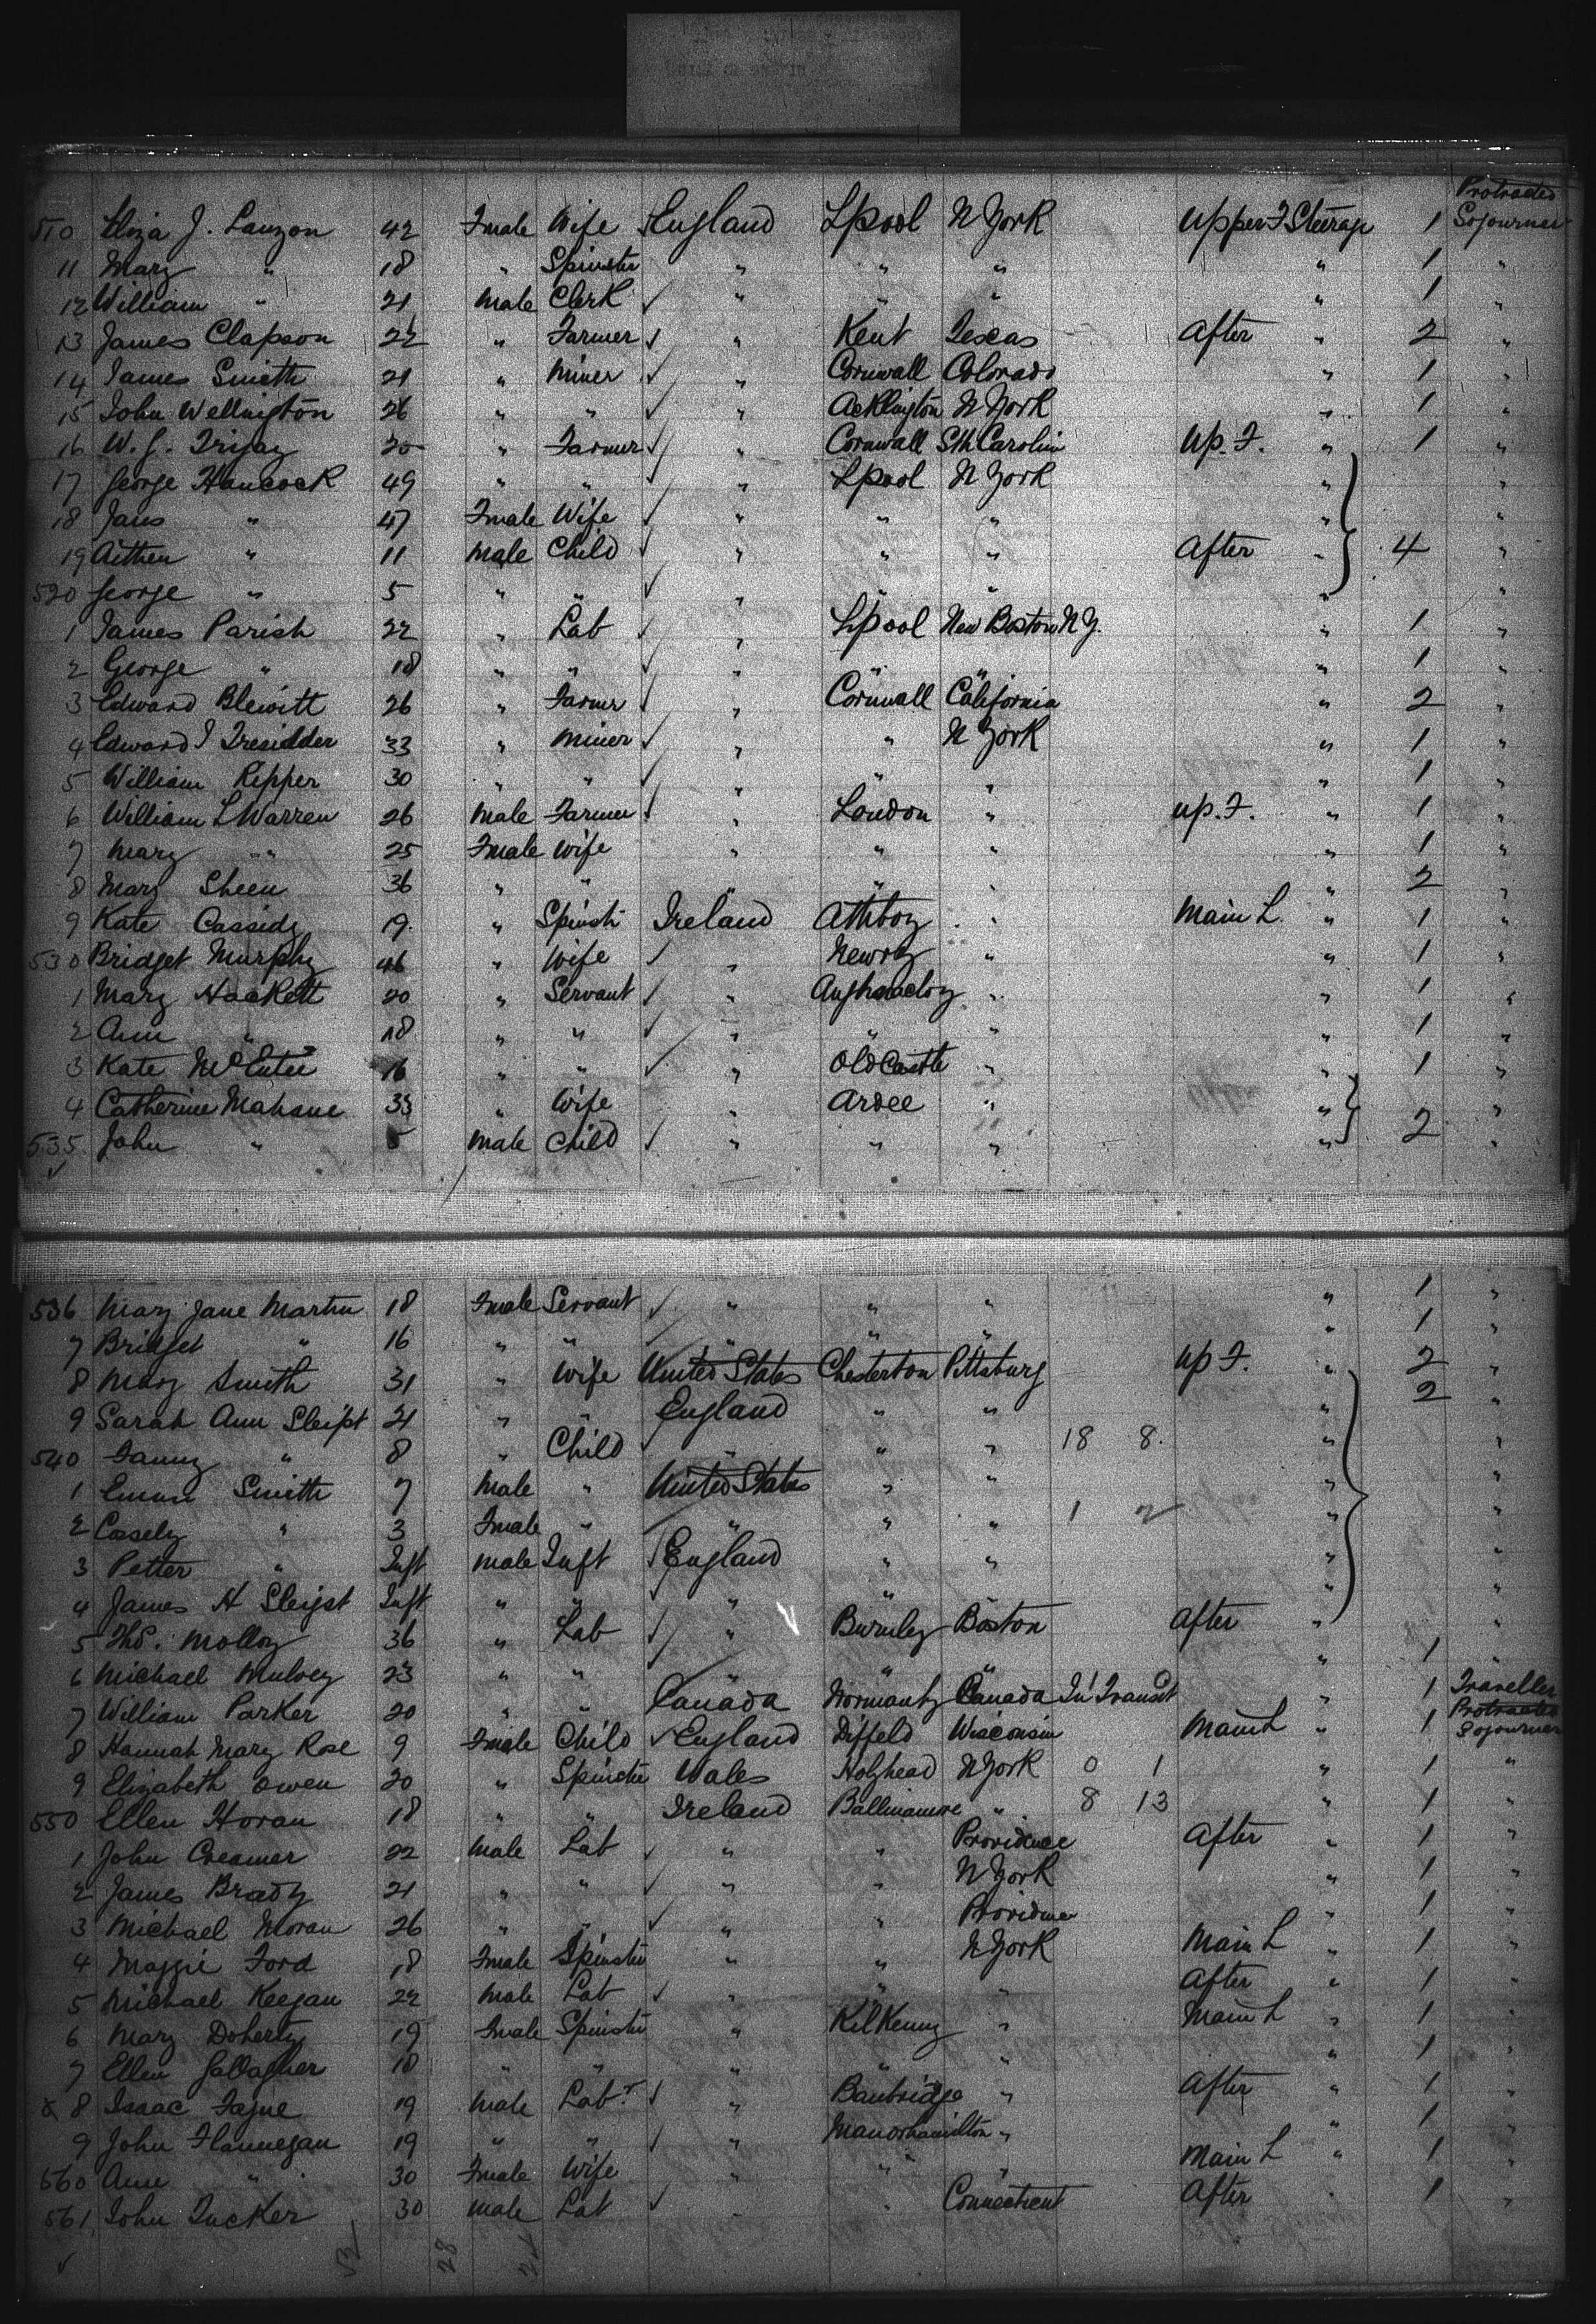 Protracted
510 Eliza J. Lauzon 42 Fmale Wife England Lpool N York Upper F Steerage 1 Sojourner
11 Mary " 18 " Spinster " " " " 1 "
12 William " 21 Male Clerk " " " " 1 "
13 James Clapson 22 " Farmer " Kent Texas After " 2 "
14 James Smith 21 " Miner " Cornwall Colorado " 1 "
15 John Wellington 26 " " " Acklington N York " 1 "
16 W. J. 20 " Farmer " Cornwall Sth Carolin Up. F. " 1 "
17 George Hancock 49 " " " Lpool N York " "
18 Jane " 47 Fmale Wife " " " " "
19 " 11 Male Child " " " After " 4 "
520 George " 5 " " " " " " "
1 James Parish 22 " Lab " Lpool New Boston N Y. " 1 "
2 George " 18 " " " " " " 1 "
3 Edward Blewitt 26 " Farmer " Cornwall California " 2 "
4 Edward J Tresidder 33 " Miner " " N York " 1 "
5 William Ripper 30 " " " " " " 1 "
6 William L Warren 26 Male Farmer " London " Up. F. " 1 "
7 Mary " 25 Fmale Wife " " " " 1 "
8 Mary Sheen 36 " " " " " " 2 "
9 Kate Cassidy 19 " Spinstr Ireland Athboy " Main L. " 1 "
530 Bridget Murphy 46 " Wife " Newry " " 1 "
1 Mary Hackett 20 " Servant " Aughnacloy " " 1 "
2 Ann " 18 " " " " " " 1 "
3 Kate McEntee 16 " " " Old Castle " " 1 "
4 Catherine Mahone 33 " Wife " Ardee " " "
535 John " 5 Male Child " " " " 2 "
536 Mary Jane Martin 18 Fmale Servant " " " " 1 "
7 Bridget " 16 " " " " " " 1 "
8 Mary Smith 31 " Wife United States Chesterton Pittsburg Up F. " 2 "
9 Sarah Ann Sleipt 21 " " England " " " 2 "
540 Fanny " 8 " Child " " " 18 8. " "
1 Smith 7 Male " United States " " " "
2 Cossely " 3 Fmale " " " " 1 2 " "
3 Petter " Inft Male Inft England " " " "
4 James H Sleipt Inft " " " " " " "
5 Thos. Molloy 36 " Lab " Burnley Boston After " "
6 Michael Mulvey 23 " " " " " " 1 "
7 William Parker 20 " " Canada Normanby Canada In Transit " 1 Traveller
Protracted
8 Hannah Mary Rose 9 Fmale Child England Diffeld Wisconsin Main L " 1 Sojourner
9 Elizabeth Owen 20 " Spinster Wales Holyhead N York 0 1 " 1 "
550 Ellen Horan 18 " " Ireland Ballinamore " 8 13 " 1 "
1 John Creamer 22 Male Lab " " Providence After " 1 "
2 James Brady 21 " " " " N York " 1 "
3 Michael Moran 26 " " " " Providence " 1 "
4 Maggie Ford 18 Fmale Spinster " " N York Main L " 1 "
5 Michael Keegan 22 Male Lab " " " After " 1 "
6 Mary Doherty 19 Fmale Spinster " Kilkenny " Main L " 1 "
7 Ellen Gallagher 18 " " " " " " 1 "
x 8 Isaac Fajne 19 Male Labr " Banbridge " After " 1 "
9 John Flannegan 19 " " " Manorhamilton " " 1 "
560 Ann " 30 Fmale Wife " " " Main L " 1 "
561 John Tucker 30 Male Lab " " Connecticut After " 1 "
28